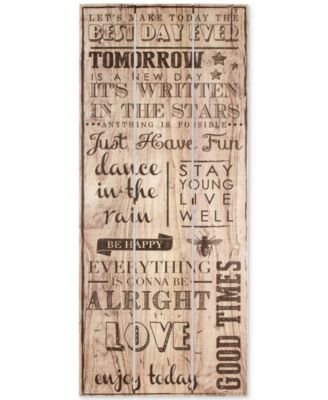 LET'S MAKE TODAY THE
BEST DAY EVER
TOMORROW
IS A NEW DAY
IT'S WRITTEN
IN THE STARS
ANYTHING IS POSSIBLE
Just Have Fun
dance
in-the
rain
STAY
YOUNG
LIVE
WELL
BE HAPPY
EVERYTHING
IS GONNA BE
ALRIGHT
LOVE
enjoy today
GOOD TIMES